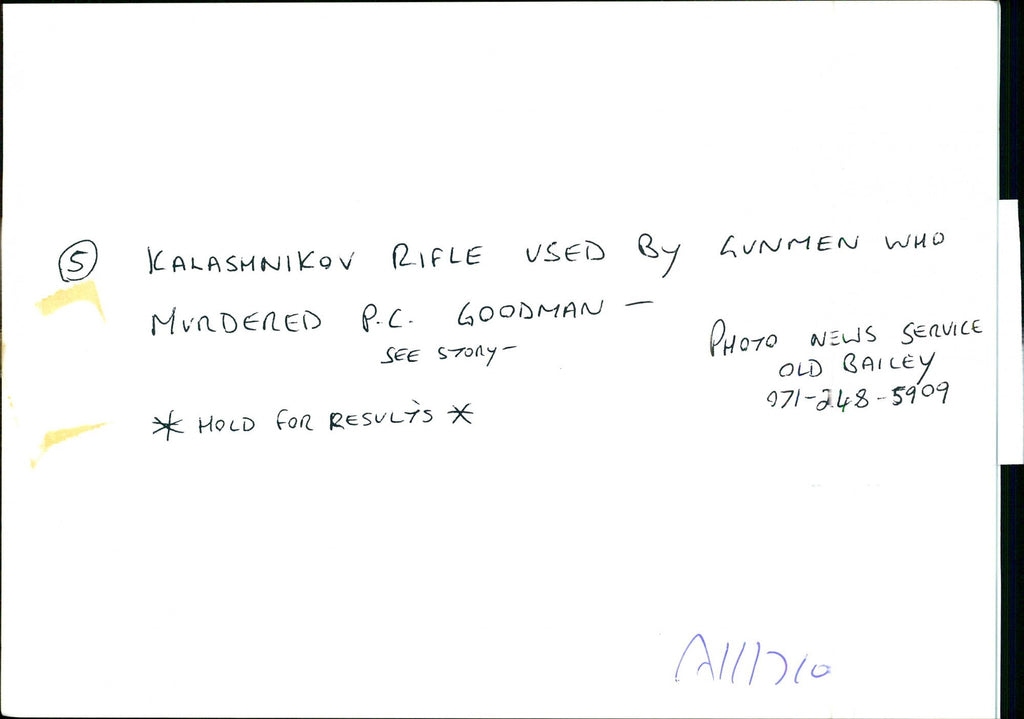 5 KALASHNIKOV RIFLE USED BY GUNMEN WHO
MURDERED P.C. GOODMAN —
SEE STORY —
* HOLD FOR RESULTS *
PHOTO NEWS SERVICE
OLD BAILEY
071-248-5909